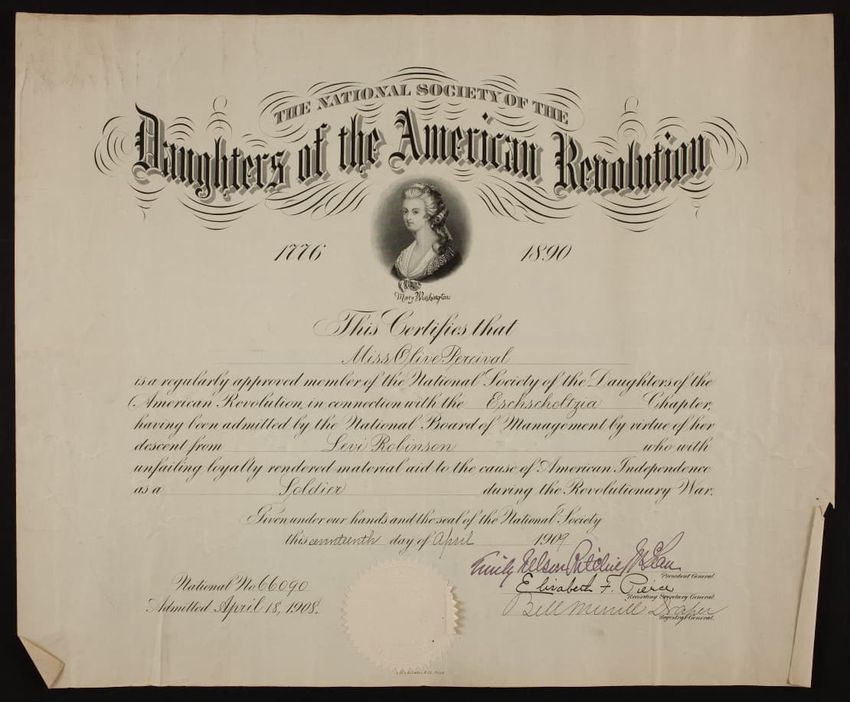 THE NATIONAL SOCIETY OF THE
Daughters of the American Revolution
1776 1890
Mary Washington
This Certifies that
Miss Olive Percival
is a regularly approved member of the National Society of the Daughters of the
American Revolution, in connection with the Eschscholtzia Chapter,
having been admitted by the National Board of Management by virtue of her
descent from Levi Robinson who with
unfailing loyalty rendered material aid to the cause of American Independence
as a Soldier during the Revolutionary War.
Given under our hands and the seal of the National Society
this day of April 1909
Emily Nelson Ritchie McLean
President General.
Elisabeth F. Pierce
Recording Secretary General.
Bell Merrill Draper
Registrar General.
National No. 66090
Admitted April 18, 1908.